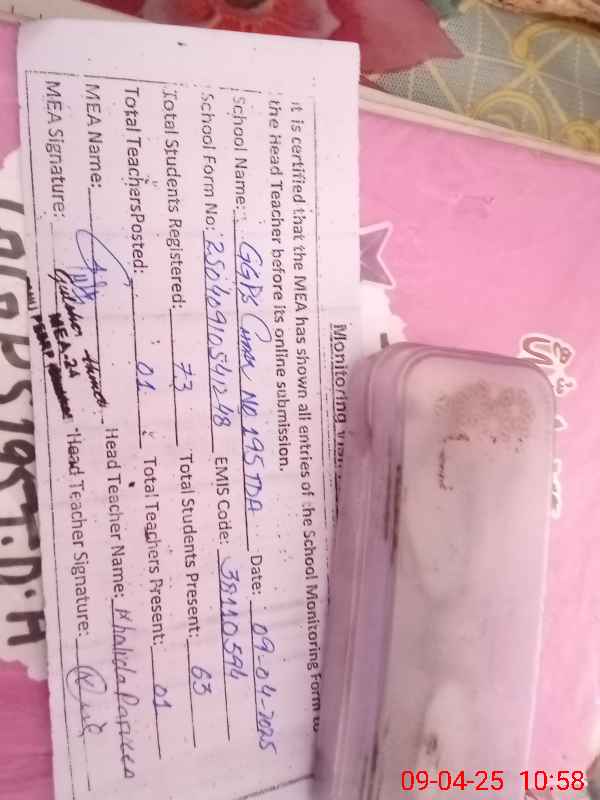 Monitoring
It is certified that the MEA has shown all entries of the School Monitoring Form to
the Head Teacher before its online submission.
School Name: GGPS Chak No 195TDA Date: 09-04-2025
School Form No: 25040910541248 EMIS Code: 38110594
Total Students Registered: 73 Total Students Present: 63
Total Teachers Posted: 01 Total Teachers Present: 01
MEA Name: Head Teacher Name: Khalida Parveen
MEA Signature: MEA-24 Head Teacher Signature:
195T.D.A
09-04-25 10:58